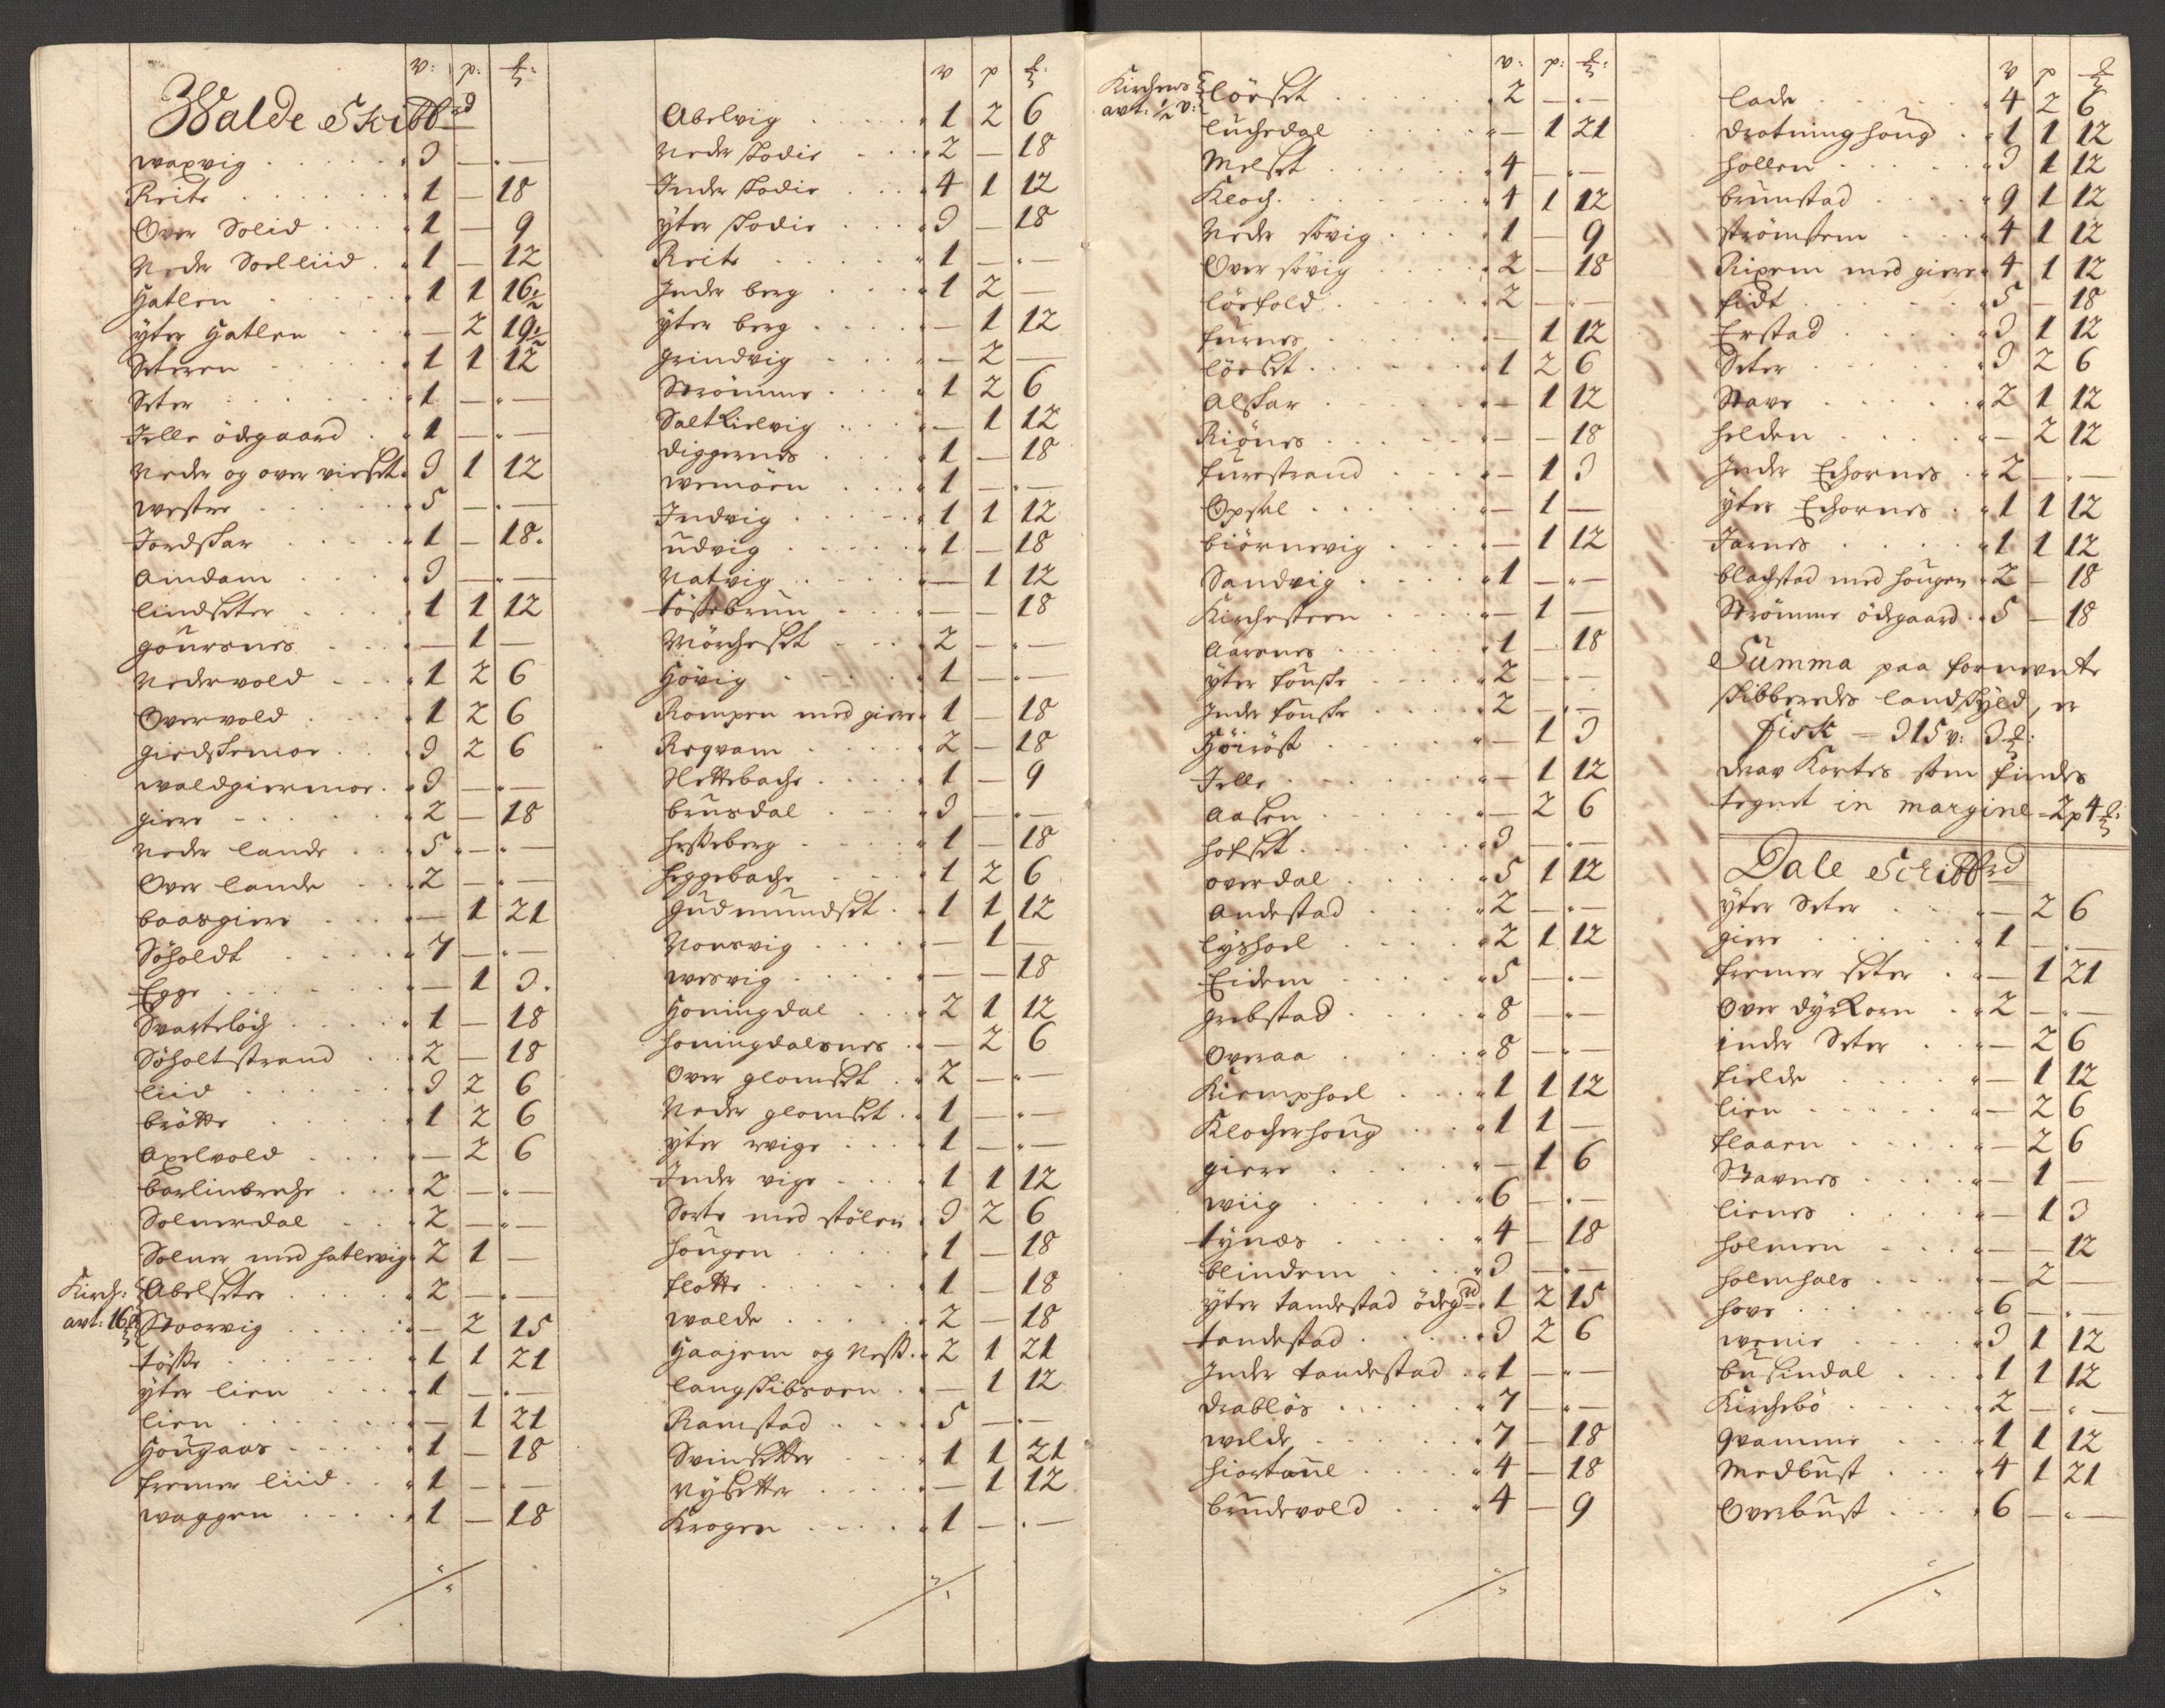 v: p: ℔:
Walde Skibbrd
waxvig 3 – –
Reite 1 – 18
Over Solid 1 – 9
Neder Soelliid 1 – 12
Hatlen 1 1 16½
ÿter Hatlen – 2 19½
Seteren 1 1 12
Seter 1 – –
Jelle ödegaard 1 – –
Neder og over vieset 3 1 12
westre 5 – –
Jordskar 1 – 18.
Amdam 3 – –
lindseter 1 1 12
goursnes – 1 –
Nedervold 1 2 6
Overvold 1 2 6
giedskemoe 3 2 6
waldgiermoe 3 – –
giere 2 – 18
Neder lande 5 – –
Over lande 2 – –
baasgiere – 1 21
Söholdt 7 – –
Egge – 1 3.
Svartelöch 1 – 18
Söholtstrand 2 – 18
liid 3 2 6
brötte 1 2 6
Apelvold – 2 6
barlinbreche 2 – –
Solnerdal 2 – –
Solner med hatlevig 2 1 –
Kirch: avt: 16 ℔
Abelseter 2 – –
Stoorvig – 2 15
tösse 1 1 21
ÿter lien 1 – –
lien – 1 21
Hougaas 1 – 18
fremer liid 1 – –
waggen 1 – 18
v p ℔:
Abelvig 1 2 6
Neder skodie 2 – 18
Inder skodie 4 1 12
ÿter skodie 3 – 18
Reite 1 – –
Inder berg 1 2 –
ÿter berg – 1 12
grindvig – 2 –
Strömme 1 2 6
Saltkielvig – 1 12
diggernes 1 – 18
wemöen 1 – –
Indvig 1 1 12
udvig 1 – 18
Natvig – 1 12
fössebrun – – 18
Mörcheset 2 – –
Hövig 1 – –
Rompen med giere 1 – 18
Regvam 2 – 18
Slettebache 1 – 9
brusdal 3 – –
hesseberg 1 – 18
heggebache 1 2 6
Gudmundset 1 1 12
Norevig – 1 –
wesvig – – 18
Honingdal 2 1 12
honingdalsnes – 2 6
Over glomset 2 – –
Neder glomset 1 – –
ÿter wige 1 – –
Inder vige 1 1 12
Sorte med stölen 3 2 6
Hougen 1 – 18
flotte 1 – 18
walde 2 – 18
Haajem og Ness 2 1 21
langskibsöen – 1 12
Ramstad 5 – –
Svinsetter 1 1 21
Nÿsetter – 1 12
Krogen 1 – –
v: p: ℔:
Kirchens avt: ½ v:
löeset 2 – –
luchedal – 1 21
Melset 4 – –
Kloch 4 1 12
Neder sövig 1 – 9
Over sövig 2 – 18
lörfold 2 – –
furnes – 1 12
löeset 1 2 6
Alskar – 1 12
Riönes – – 18
furestrand – 1 3
Opskel – 1 –
biörnevig – 1 12
Sandvig 1 – –
Kirchesteen – 1 –
Aarsnes 1 – 18
ÿter fouske 2 – –
Inder fouske 2 – –
Höiröst – 1 3
Jelle – 1 12
Aasen – 2 6
hofset 3 – –
overdal 5 1 12
Andestad 2 – –
lÿshoel 2 1 12
Eidem 5 – –
grebstad 8 – –
Overaa 8 – –
Kiemphoel 1 1 12
Klocherhoug 1 1 –
giere – 1 6
wiig 6 – –
tÿnæs 4 – 18
blindem 3 – –
ÿter tandestad ödegrd 1 2 15
tandestad 3 2 6
Inder tandestad 1 – –
drablös 7 – –
welde 7 – 18
hiortaue 4 – 18
brudevold 4 – 9
v p ℔
lade 4 2 6
dratninghoug 1 1 12
hollen 3 1 12
brunstad 9 1 12
strömsem 4 1 12
Rixem med giere 4 1 12
fidt 5 – 18
Erstad 3 1 12
Seter 3 2 6
Stave 2 1 12
helden – 2 12
Inder Echornes 2 – –
ÿter Echornes 1 1 12
Jarnes 1 1 12
blachstad med hougen 2 – 18
Strömme ödegaard 5 – 18
Summa paa fornevnte
skibbredes landskÿld, er
fisk – 315 v: 3 ℔:
derav kortes som findes
tegnet in margine – 2 p 4 ℔:
Dale Scribbrd
ÿter Seter – 2 6
giere 1 – –
fremer seter – 1 21
Over dÿrkorn 2 – –
inder Seter – 2 6
fielde – 1 12
lien – 2 6
flaaen – 2 6
Stavnes – 1 –
lienes – 1 3
holmen – – 12
holmhals – 2 –
hove 6 – –
wenie 3 1 12
busindal 1 1 12
Kirchebö 2 – –
qvamme 1 1 12
Medbust 4 1 21
Overbust 6 – –